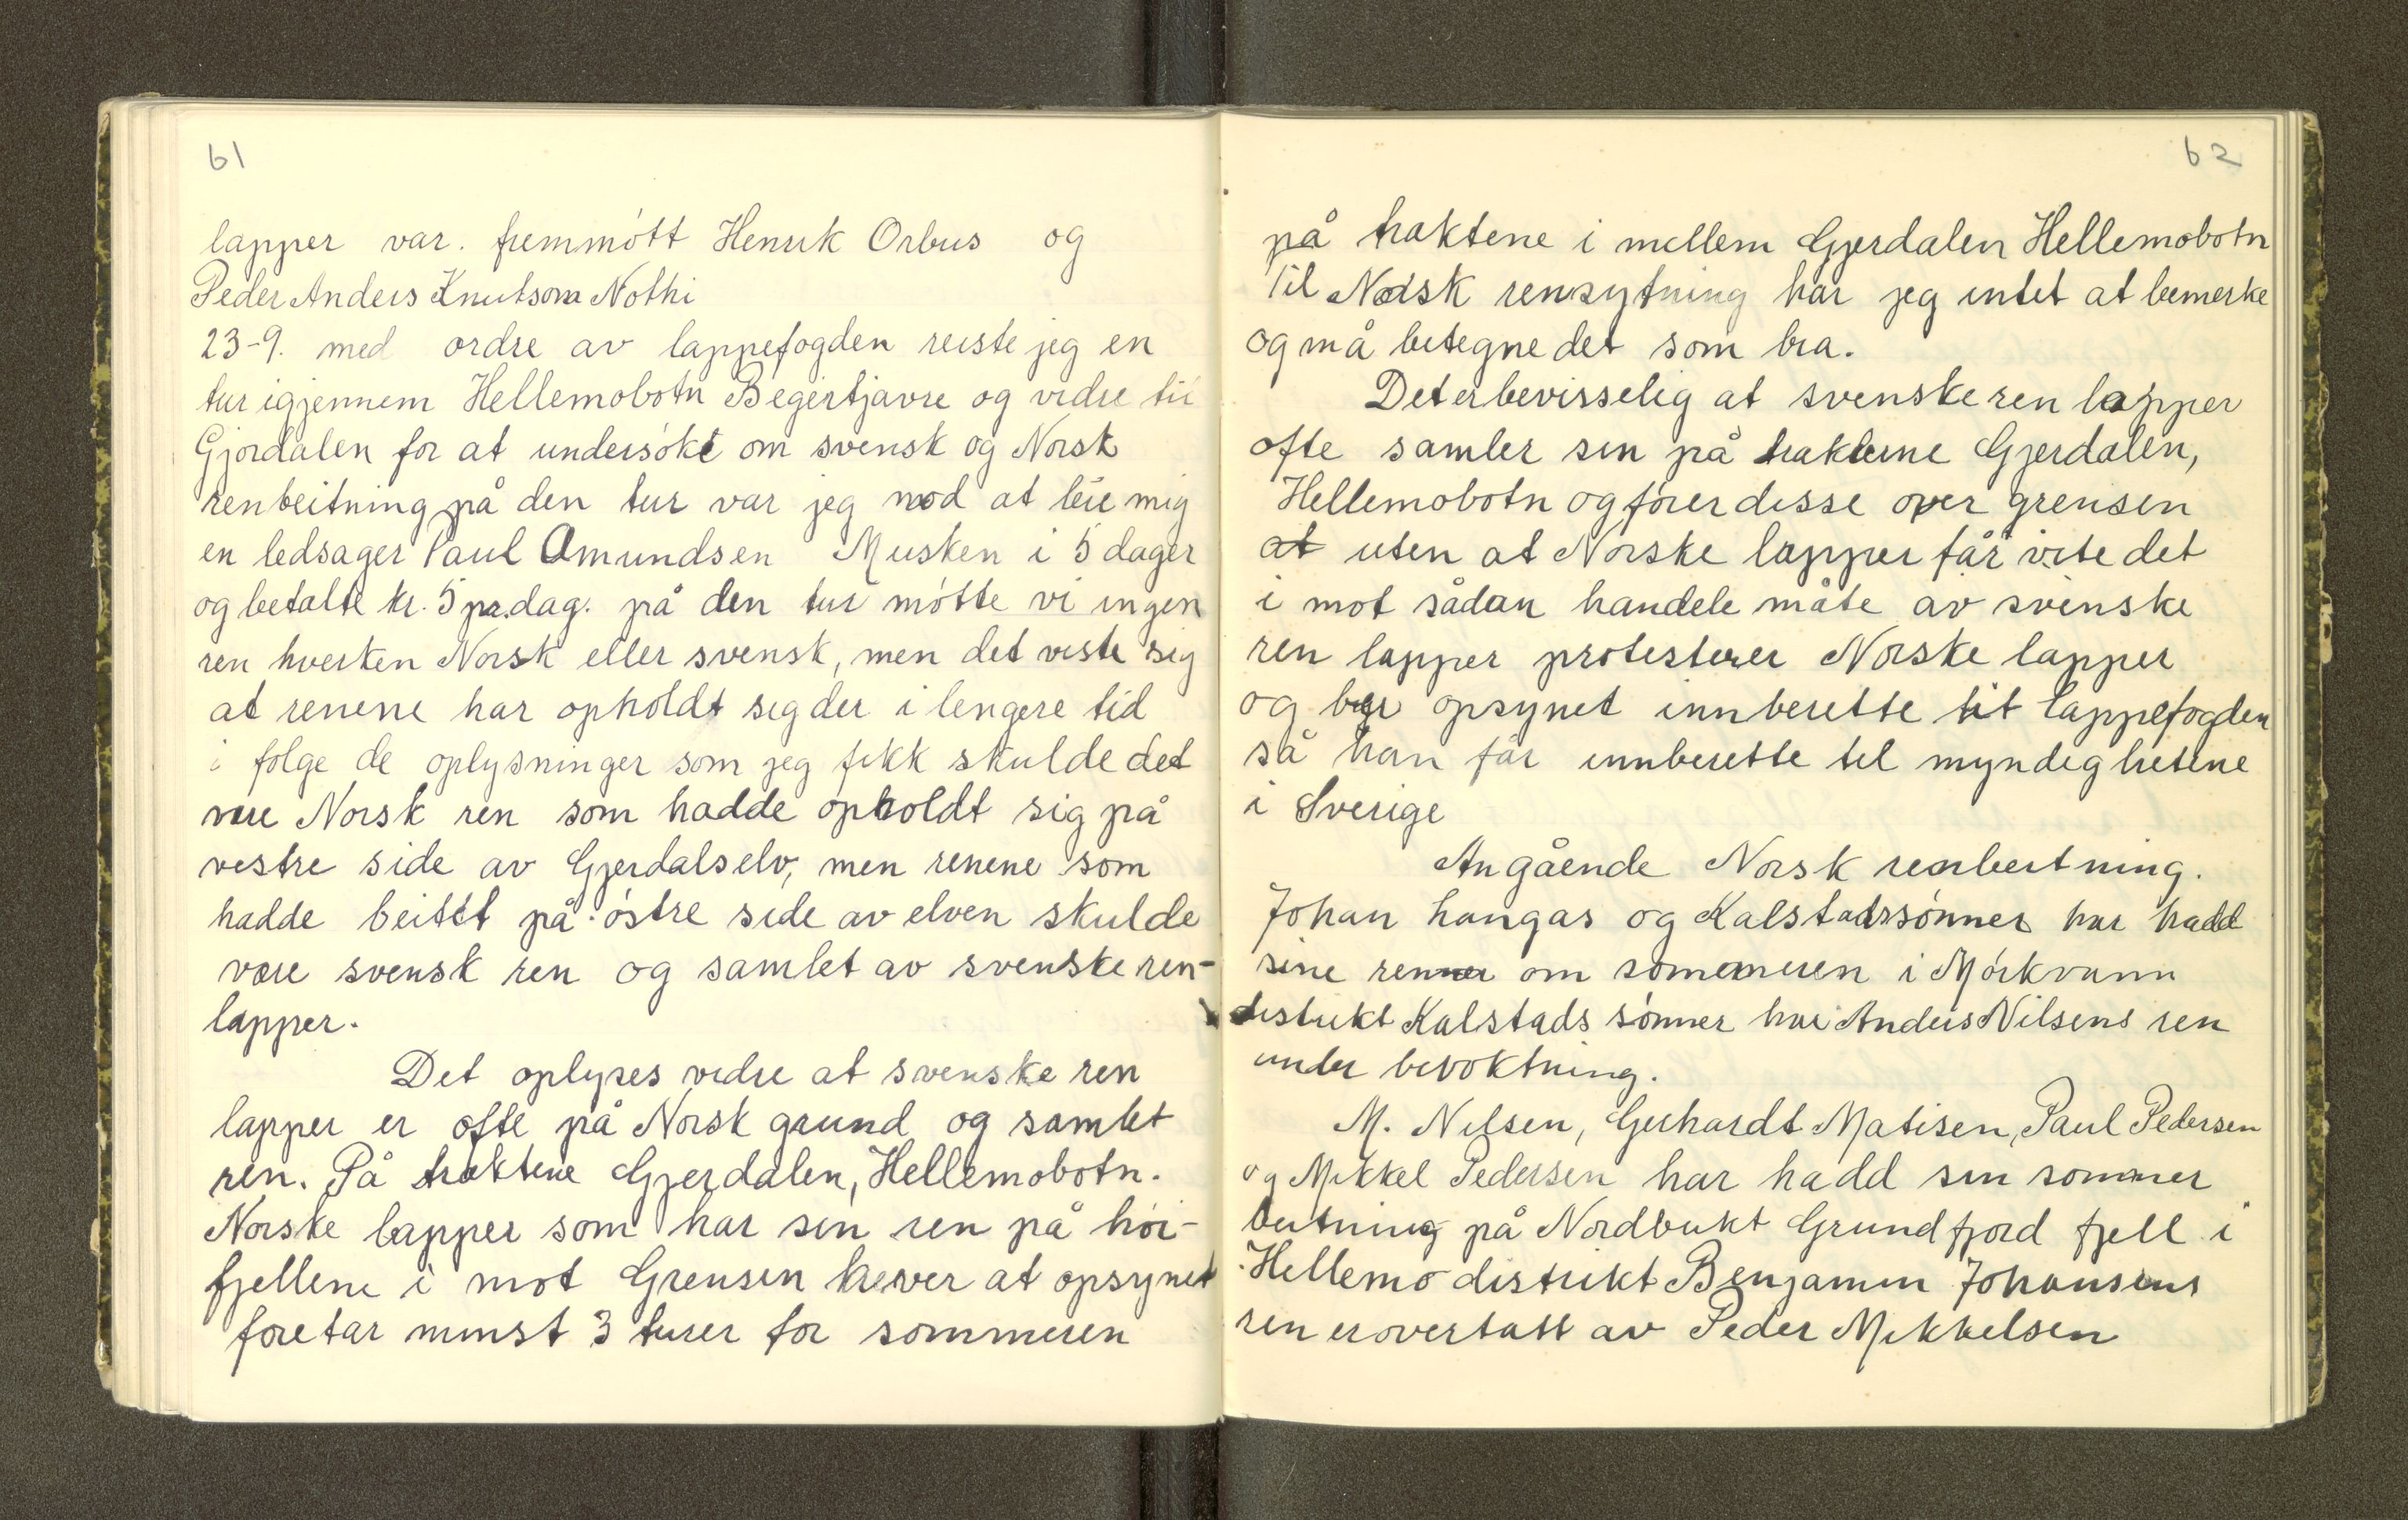 61
lapper var. fremmött Henrik Orbus og
Peder Anders Knutson Nothi
23-9. med ordre av lappefogden reiste jeg en
tur igjennem Hellemobotn Begertjavre og vidre til
Gjordalen for at undersöke om svensk og Norsk
renbeitning på den tur var jeg nød at leie mig
en ledsager Paul Amundsen Musken i 5 dager
og betalte kr. 5 pr. dag. på den tur mötte vi ingen
ren hverken Norsk eller svensk, men det viste sig
at renene har opholdt sig der i lengere tid
i folge de oplysninger som jeg fikk skulde det
være Norsk ren som hadde opholdt sig på
vestre side av Gjerdalselv, men renene som
hadde beitet på östre side av elven skulde
være svensk ren og samlet av svenske ren-
lapper.
Det oplyses vidre at svenske ren
lapper er ofte på Norsk grund og samlet
ren. På traktene Gjerdalen, Hellemobotn.
Norske lapper som har sin ren på höi-
fjellene i mot Grensen krever at opsynet
foretar minst 3 turer for sommeren
62
på traktene i mellem Gjerdalen Hellemobotn
Til Norsk rensytning har jeg intet at bemerke
og må betegne det som bra.
Det er bevisselig at svenske ren lapper
ofte samler sin på trakterne Gjerdalen,
Hellemobotn og förer disse over grensen
at uten at Norske lapper får vite det
i mot sådan handele måte av svenske
ren lapper protesterer Norske lapper
og ber opsynet innberette til lappefogden
så han får innberette til myndighetene
i Sverige
Angående Norsk renbeitning.
Johan hangas og Kalstadssönner har hadd
sine renner om sommeren i Mörkvann
distrikt Kalstads sönner har Anders Nilsens ren
under bevoktning.
M. Nilsen, Gerhardt Matisen, Paul Pedersen
og Mikkel Pedersen har hadd sin sommer
beitning på Nordbukt Grundfjord fjell i
Hellemo distrikt Benjamin Johansens
ren er overtatt av Peder Mikkelsen